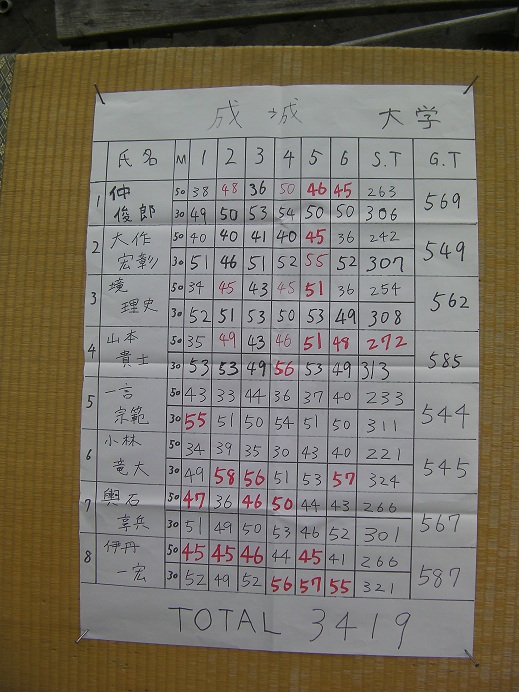 成城 大学
氏名 M 1 2 3 4 5 6 S.T G.T
1 仲 50 38 48 36 50 46 45 263 569
俊郎 30 49 50 53 54 50 50 306
2 大作 50 40 40 41 40 45 36 242 549
宏彰 30 51 46 51 52 55 52 307
3 境 50 34 45 43 45 51 36 254 562
理史 30 52 51 53 50 53 49 308
4 山本 50 35 49 43 46 51 48 272 585
貴士 30 53 53 49 56 53 49 313
5 一言 50 43 33 44 36 37 40 233 544
宗範 30 55 51 50 54 51 50 311
6 小林 50 34 39 35 30 43 40 221 545
竜大 30 49 58 56 51 53 57 324
7 輿石 50 47 36 46 50 44 43 266 567
享兵 30 51 49 50 53 46 52 301
8 伊丹 50 45 45 46 44 45 41 266 587
一宏 30 52 49 52 56 57 55 321
TOTAL 3419